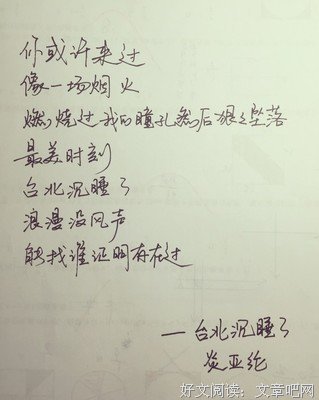 你或许来过
像一场烟火
燃烧过我的瞳孔然后狠狠坠落
最美时刻
台北沉睡了
浪漫没风声
能找谁证明存在过
— 台北沉睡了
炎亚纶
好文阅读：文章吧网